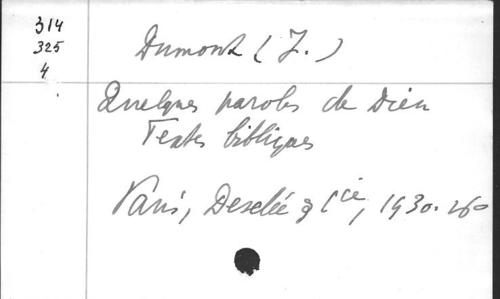 314
325
4
Dumont (J.)
Quelques paroles de Dieu
Textes bibliques
Paris, Desclée & Cie, 1930. 16°